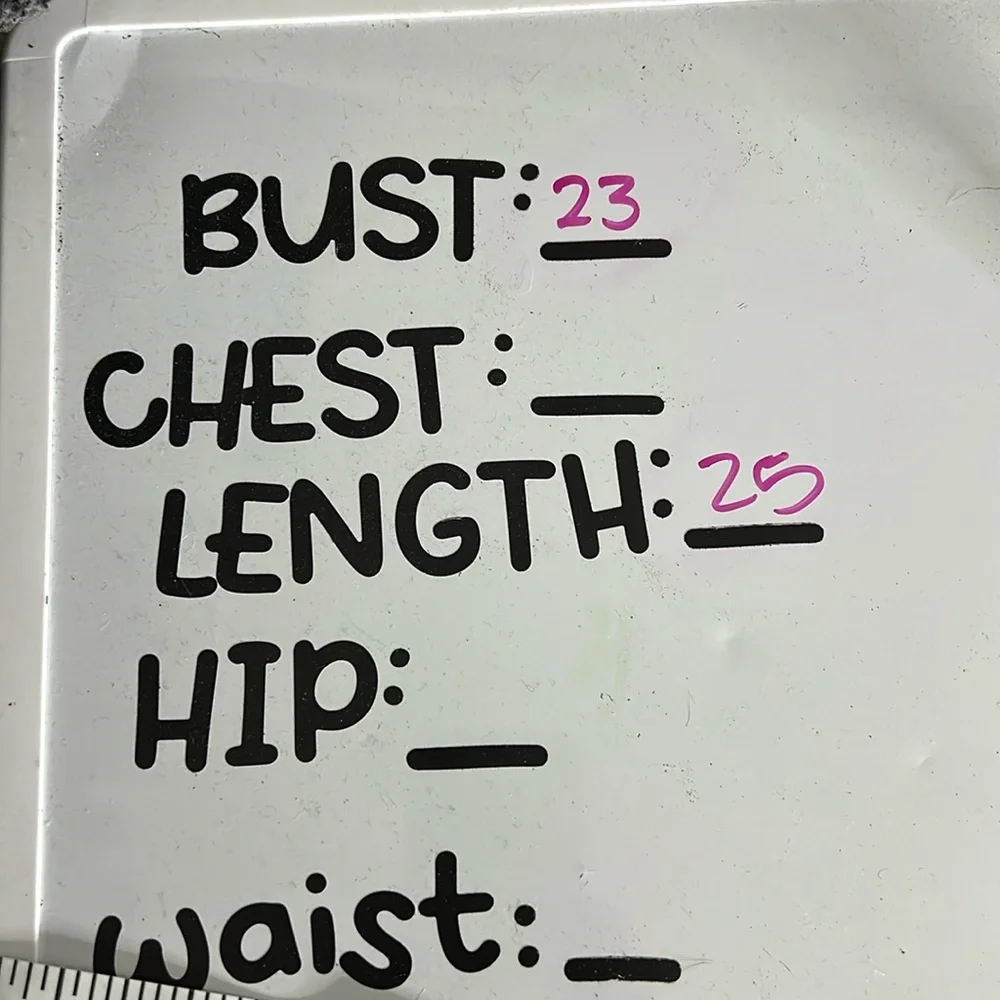 BUST: 23
CHEST: _
LENGTH: 25
HIP: _
waist: _